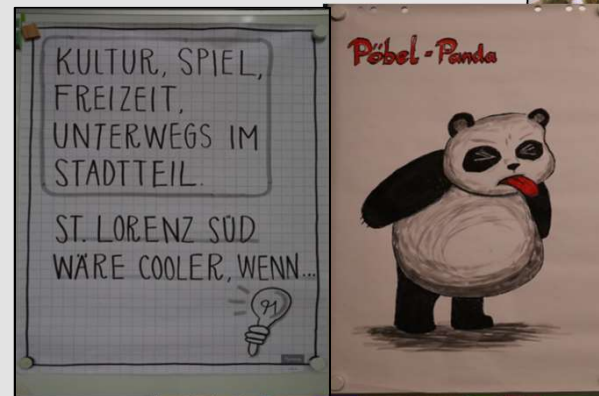 KULTUR, SPIEL,
FREIZEIT,
UNTERWEGS IM
STADTTEIL.
ST. LORENZ SÜD
WÄRE COOLER, WENN...
Pöbel-Panda